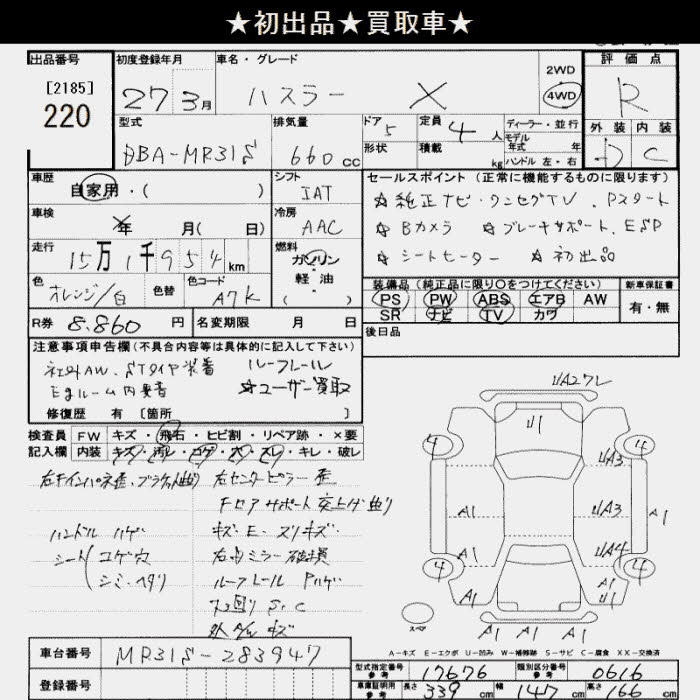 ★初出品★買取車★
出品番号 初度登録年月 車名・グレード 2WD 評価点
[2185] 220 27 3月 ハスラー X 4WD R
型式 排気量 ドア 5 定員 4人 ディーラー・並行 外装 内装
DBA-MR31S 660cc 形状 積載 kg モデル年式 年 ハンドル 左・右 D C
車歴 シフト セールスポイント (正常に機能するものに限ります)
自家用・( ) IAT ☆ 純正ナビ・ワンセグTV、Pスタート
車検 年 月( 日) 冷房 AAC ☆ Bカメラ ☆ ブレーキサポート、ESP
走行 15万1千954km 燃料 ガソリン・軽油・( ) ☆ シートヒーター ☆ 初出品
色 オレンジ/白 色替 色コード A7K 装備品 (純正品に限り○をつけてください) 新車保証書
PS PW ABS エアB AW 有・無
SR ナビ TV カワ
R券 8.860円 名変期限 月 日 後日品
注意事項申告欄 (不具合内容等は具体的に記入して下さい)
社外AW、STタイヤ装着 ルーフレール
Egルーム内要着 ☆ユーザー買取
修復歴 有 [箇所 ]
検査員 FW キズ・飛石・ヒビ割・リペア跡・×要
記入欄 内装 キズ・汚レ・コゲ・穴・スレ・キレ・破レ
左センターピラー歪
ハンドル ハゲ キズ E・スリキズ・
シート コゲ穴 右ミラー破損
シミ・ヘタリ ルーフレール Pハゲ
下回り S・C
UA27レ
U1
4 4
UA3
A1 UA3 A1
A1 UA4
4 4
A1 A1
A1
スペア A1 A1 A1
A-キズ E-エクボ U-凹み W-補修跡 S-サビ C-腐食 XX-交換済
車台番号 MR31S-283947
型式指定番号 参考 17676 類別区分番号 参考 0616
登録番号 車庫証明用 参考 長さ 339cm 幅 147cm 高さ 166cm